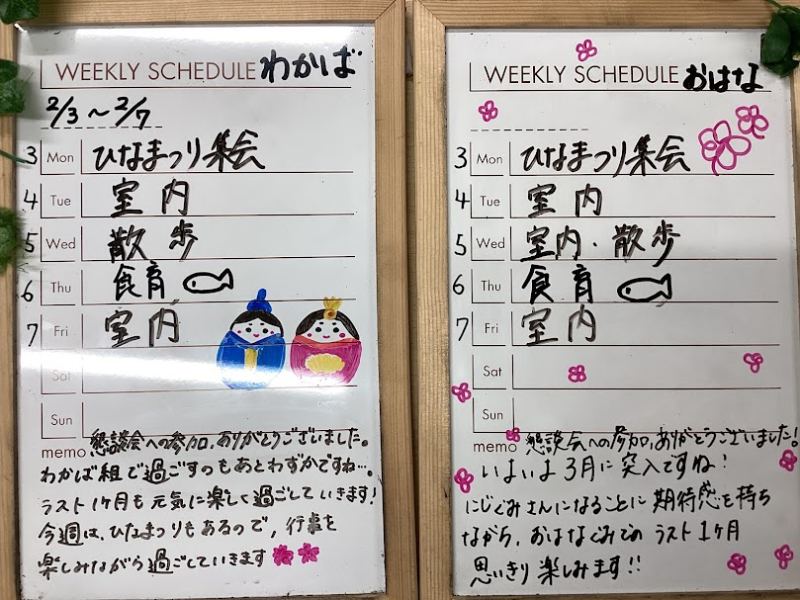 WEEKLY SCHEDULE わかば
2/3～2/7
3 Mon ひなまつり集会
4 Tue 室内
5 Wed 散歩
6 Thu 食育
7 Fri 室内
Sat
Sun
memo 懇談会への参加、ありがとうございました。
わかば組で過ごすのもあとわずかですね…。
ラスト1ヶ月も元気に楽しく過ごしていきます!
今週は、ひなまつりもあるので、行事を
楽しみながら過ごしていきます
WEEKLY SCHEDULE おはな
3 Mon ひなまつり集会
4 Tue 室内
5 Wed 室内・散歩
6 Thu 食育
7 Fri 室内
Sat
Sun
memo 懇談会への参加、ありがとうございました!
いよいよ3月に突入ですね!
にじぐみさんになることに期待感を持ち
ながら、おはなぐみでのラスト1ヶ月
思いきり楽しみます!!